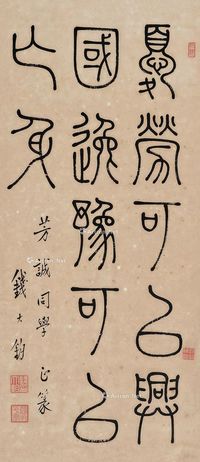 憂勞可以興
國逸豫可以
亡身
芳誠同學正篆
錢大鈞